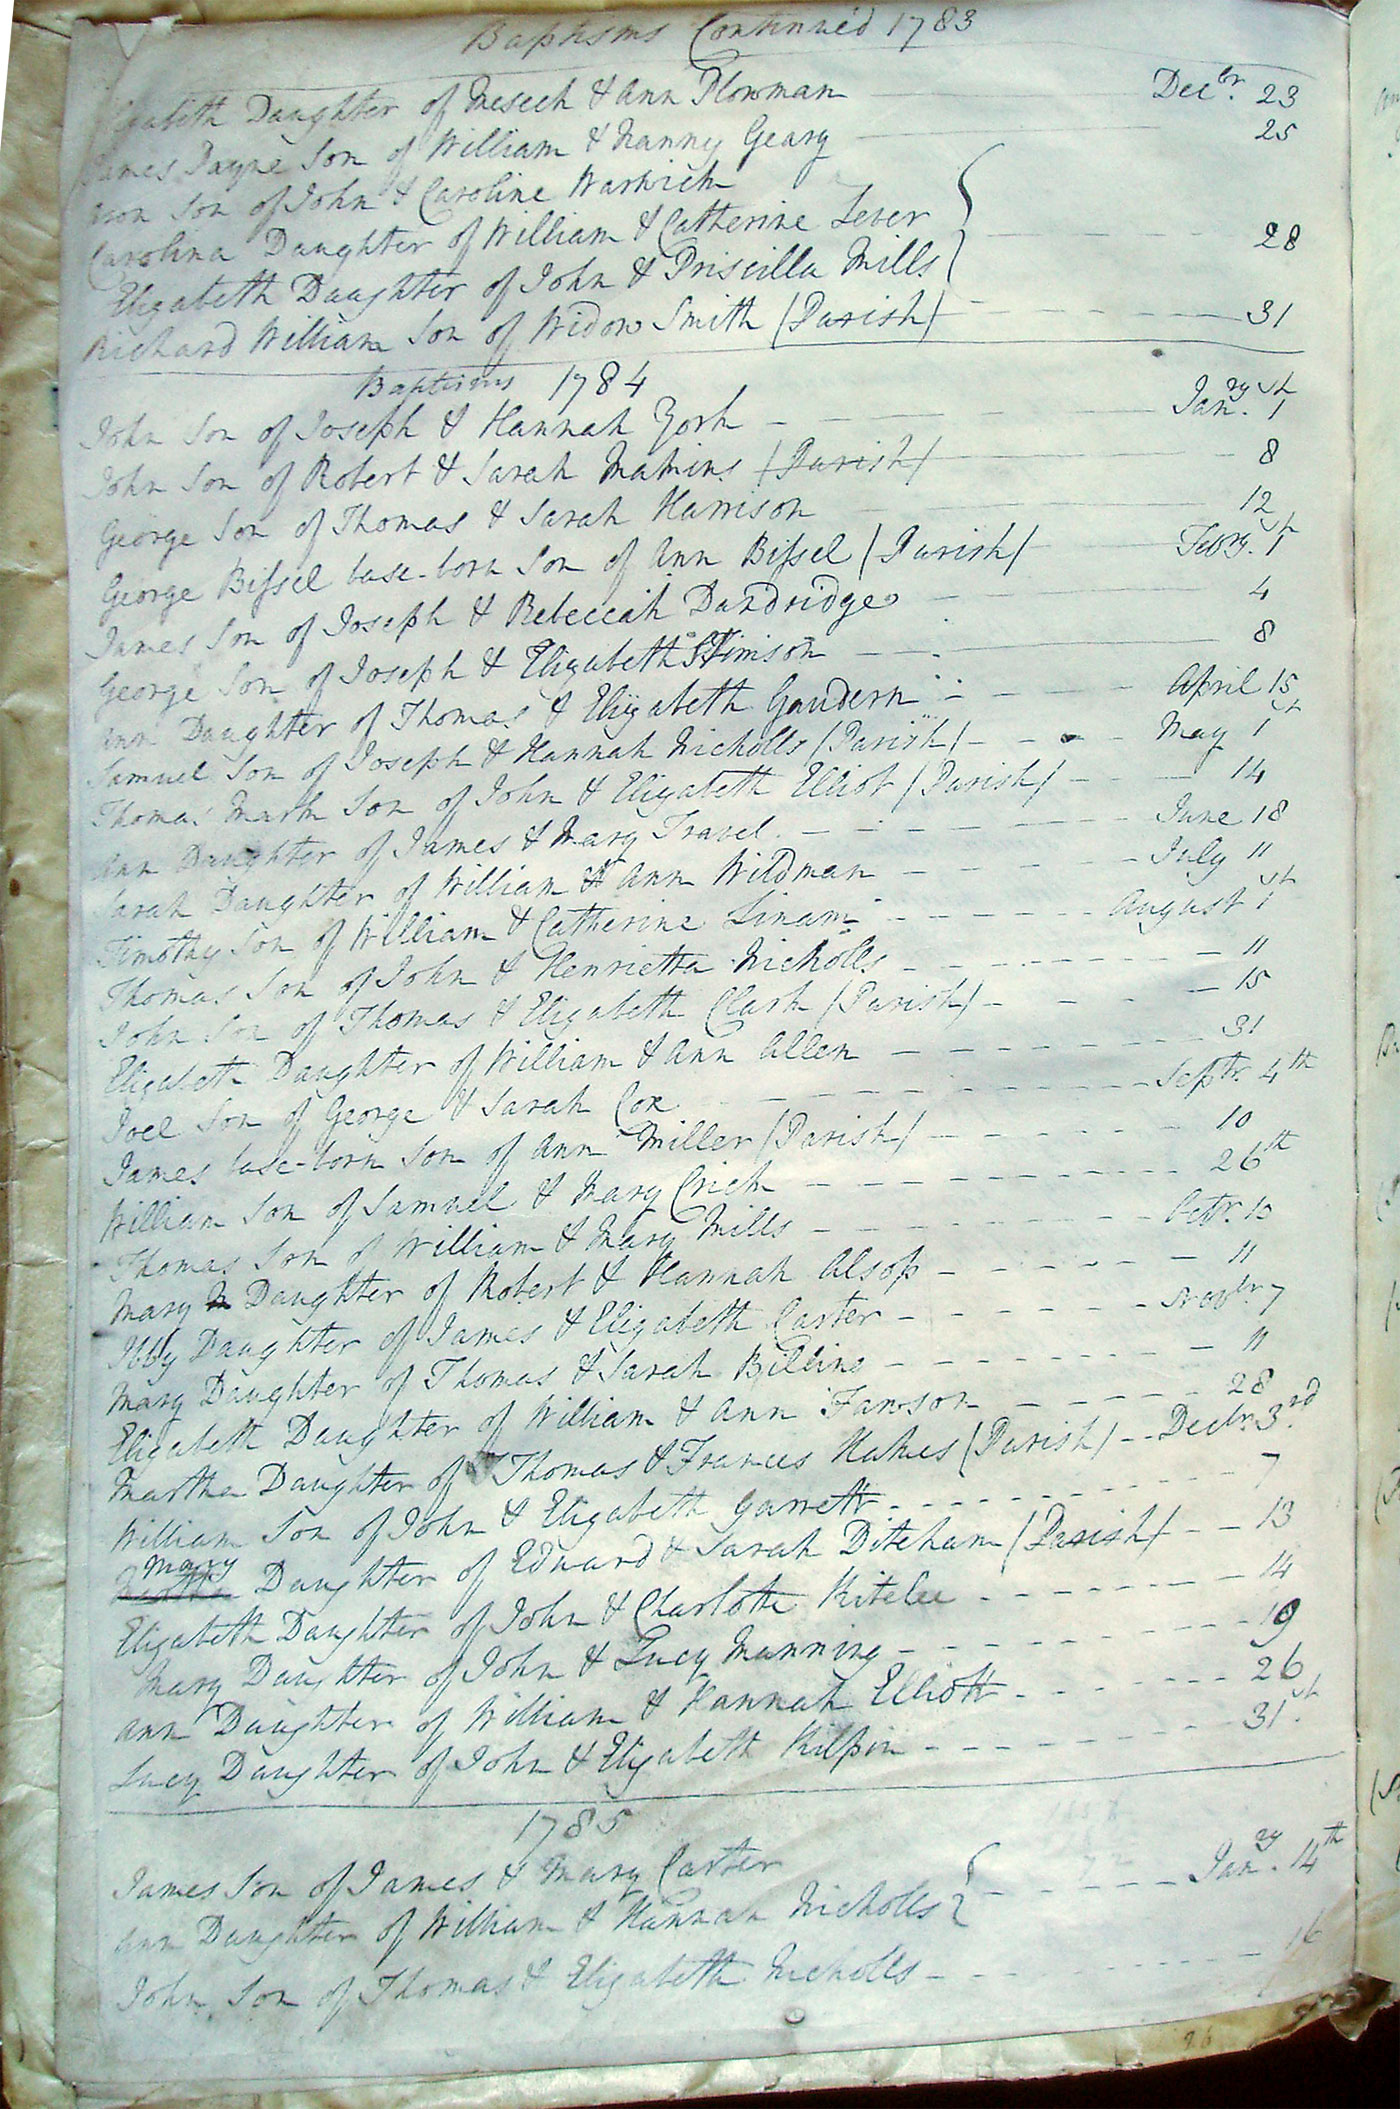 Baptisms Continued 1783
Elizabeth Daughter of Mesech & Ann Plowman Decbr. 23
James Payne Son of William & Nanny Geary 25
Son of John & Caroline Warwick
Carolina Daughter of William & Catherine Lever 28
Elizabeth Daughter of John & Priscilla Mills
Richard William Son of Widow Smith (Parish) 31
Baptisms 1784
John Son of Joseph & Hannah York Janry. 1st
John Son of Robert & Sarah (Parish) 8
George Son of Thomas & Sarah Harrison 12
George Bissel base-born Son of Ann Bissel (Parish) Febry. 1st
James Son of Joseph & Rebeccah Dandridge 4
George Son of Joseph & Elizabeth Stimson 8
Ann Daughter of Thomas & Elizabeth Gaudern April 15
Samuel Son of Joseph & Hannah Nicholls (Parish) May 1st
Thomas Mark Son of John & Elizabeth Elliot (Parish) 14
Ann Daughter of James & Mary Travel June 18
Sarah Daughter of William & Ann Wildman July 11
Timothy Son of William & Catherine Linam August 1st
Thomas Son of John & Henrietta Nicholls 11
John Son of Thomas & Elizabeth Clark (Parish) 15
Elizabeth Daughter of William & Ann Allen 31
Joel Son of George & Sarah Cox Septr. 4th
James base-born Son of Ann Miller (Parish) 10
William Son of Samuel & Mary Crick 26th
Thomas Son of William & Mary Mills Octr. 10
Mary Daughter of Robert & Hannah Alsop 11
Daughter of James & Elizabeth Carter Novbr. 7
Mary Daughter of Thomas & Sarah Billing 11
Elizabeth Daughter of William & Ann 28
Martha Daughter of Thomas & Frances (Parish) Decbr. 3rd
William Son of John & Elizabeth Garrett 7
Mary Daughter of Edward & Sarah Ditcham (Parish) 13
Elizabeth Daughter of John & Charlotte Kitelee 14
Mary Daughter of John & Lucy Manning 19
Ann Daughter of William & Hannah Elliott 26
Lucy Daughter of John & Elizabeth Kilpin 31st.
1785
James Son of James & Mary Carter
Ann Daughter of William & Hannah Nicholls Janry. 14th
John Son of Thomas & Elizabeth Nicholls 16